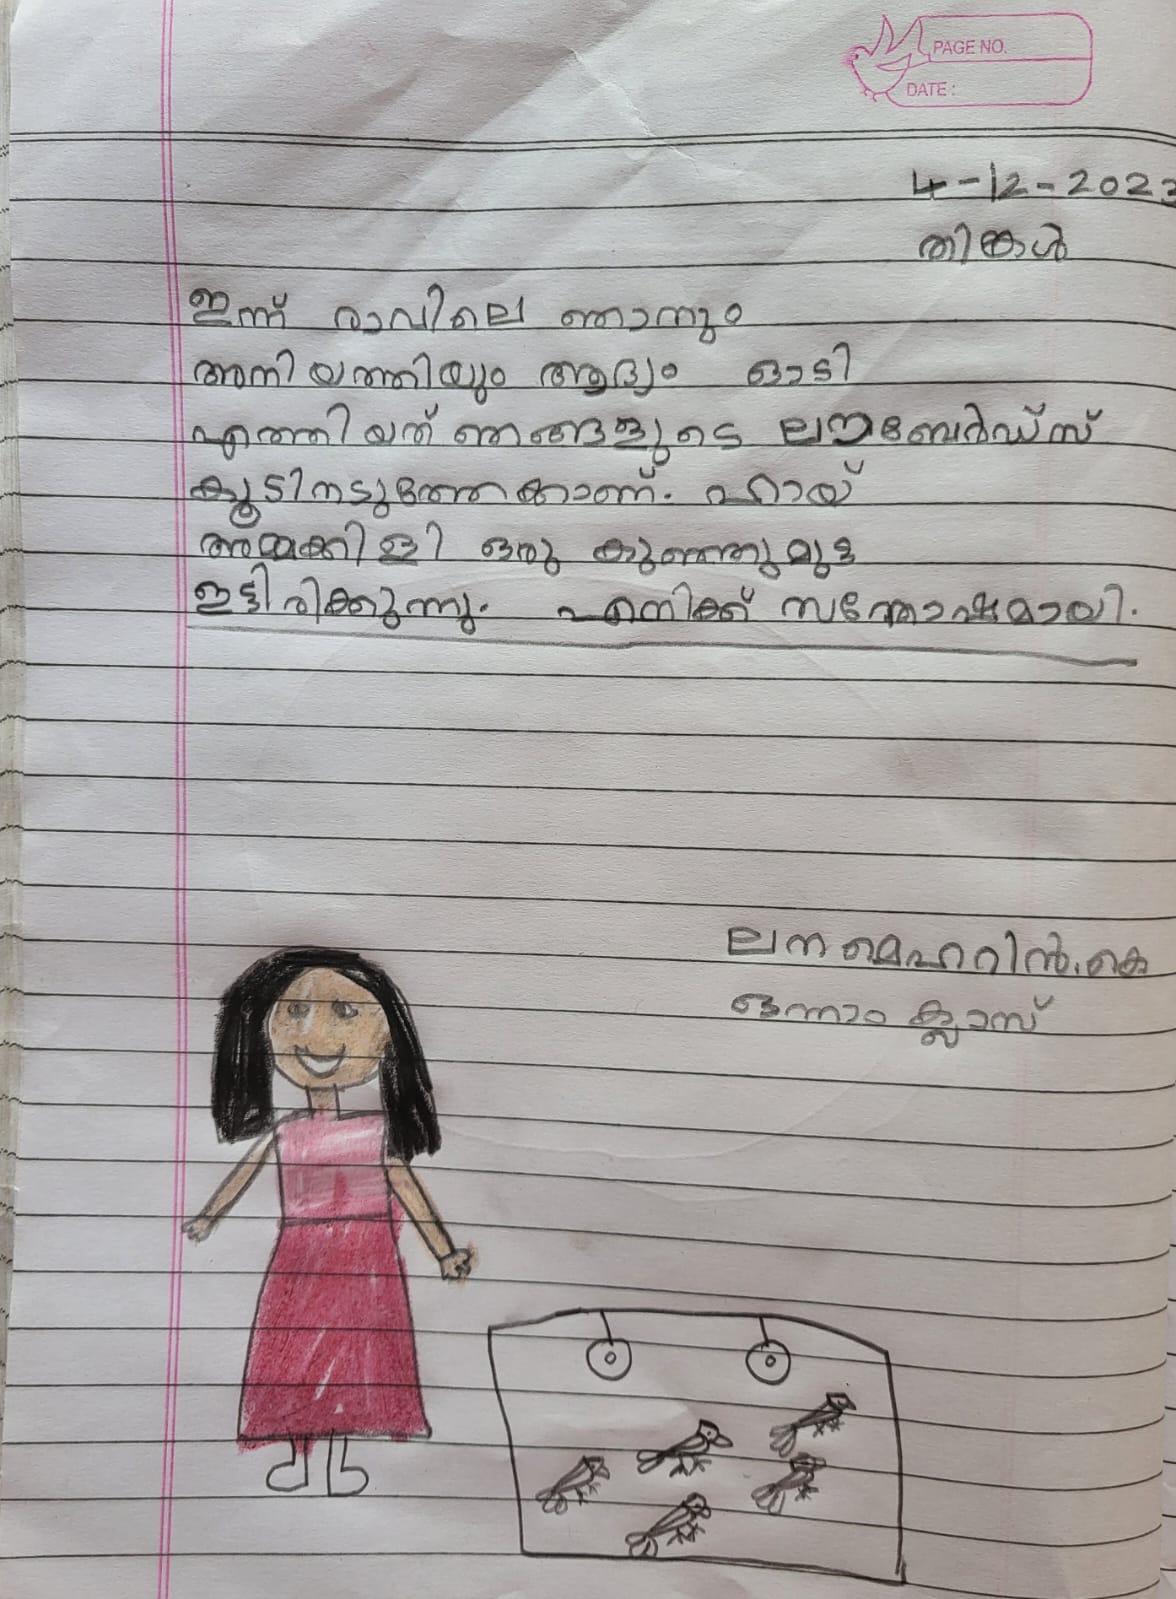 PAGE NO.
DATE :
4-12-2023
തിങ്കൾ
ഇന്ന് രാവിലെ ഞാനും
അനിയത്തിയും ആദ്യം ഓടി
എത്തിയത് ഞങ്ങളുടെ ലൗബേർഡ്സ്
കൂടിനടുത്തേക്കാണ്. ഹായ്
അമ്മക്കിളി ഒരു കുഞ്ഞുമുട്ട
ഇട്ടിരിക്കുന്നു. എനിക്ക് സന്തോഷമായി.
ലന മെഹറിൻ.കെ
ഒന്നാം ക്ലാസ്